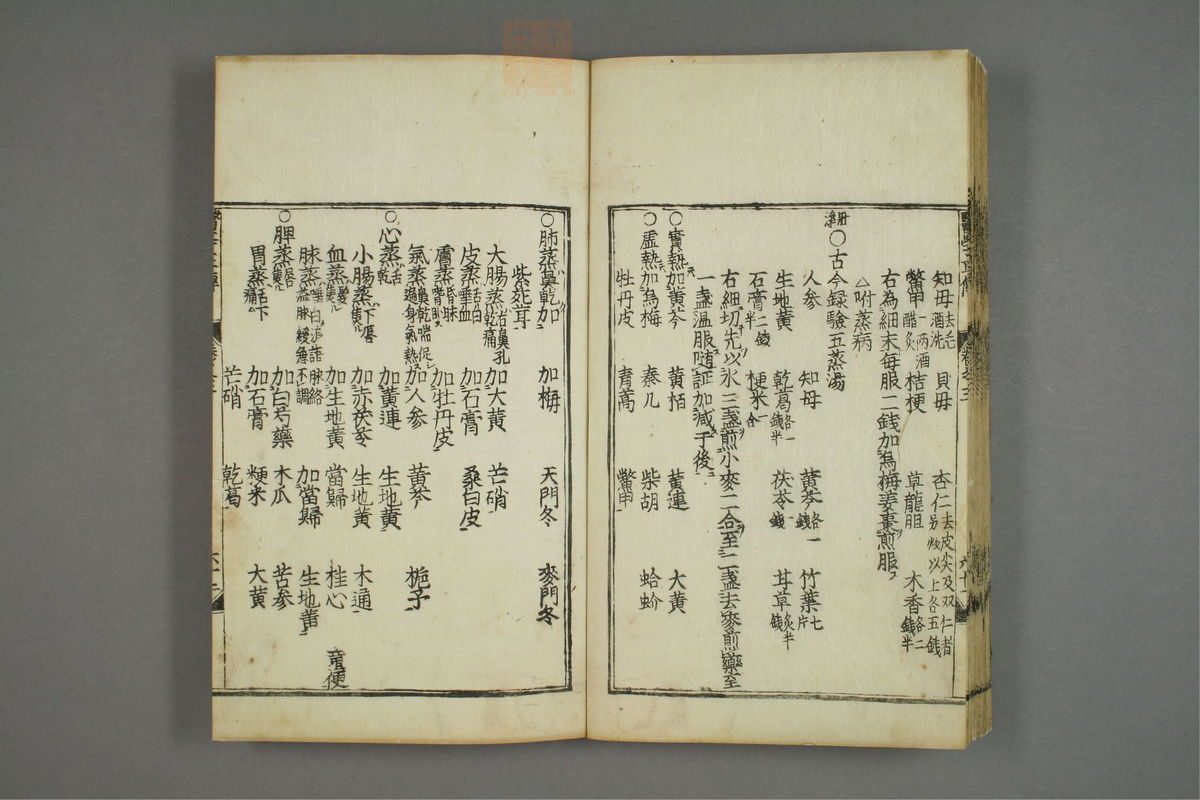 知母去毛酒洗 貝母 杏仁去皮尖及双仁者另炒以上各五錢
鱉甲一兩酒醋炙 桔梗 草龍胆 木香各二錢半
右為細末每服二錢加烏梅姜棗煎服
△咐蒸病
〇古今録驗五蒸湯
人参 知母 黄芩各一錢 竹葉七片
生地黄 乾葛各一錢半 茯苓一錢 甘草炙半錢
石膏二錢半 粳米一合
右細切先以水三盞煎小麥二合至二盞去麥煎藥至
一盞温服随証加減于後
〇實熱加黄芩 黄栢 黄連 大黄
〇虚熱加烏梅 秦艽 柴胡 蛤蚧
牡丹皮 青蒿 鱉甲
〇肺蒸鼻乾加 加梅 天門冬 麥門冬
紫菀耳
大腸蒸右鼻孔乾痛 加大黄 芒硝
皮蒸舌白唾血 加石膏 桑白皮
膚蒸昏昧 加牡丹皮
氣蒸鼻乾喘促遍身氣熱 加人参 黄芩 梔子
〇心蒸舌乾 加黄連 生地黄
小腸蒸下唇焦 加赤茯苓 生地黄 木通
血蒸髮焦 加生地黄 當歸 桂心 童便
脉蒸唾白浪語脉絡溢脉緩急不調 加當歸 生地黄
〇脾蒸唇焦 加白芍藥 木瓜 苦参
胃蒸舌下痛 加石膏 粳米 大黄
芒硝 乾葛